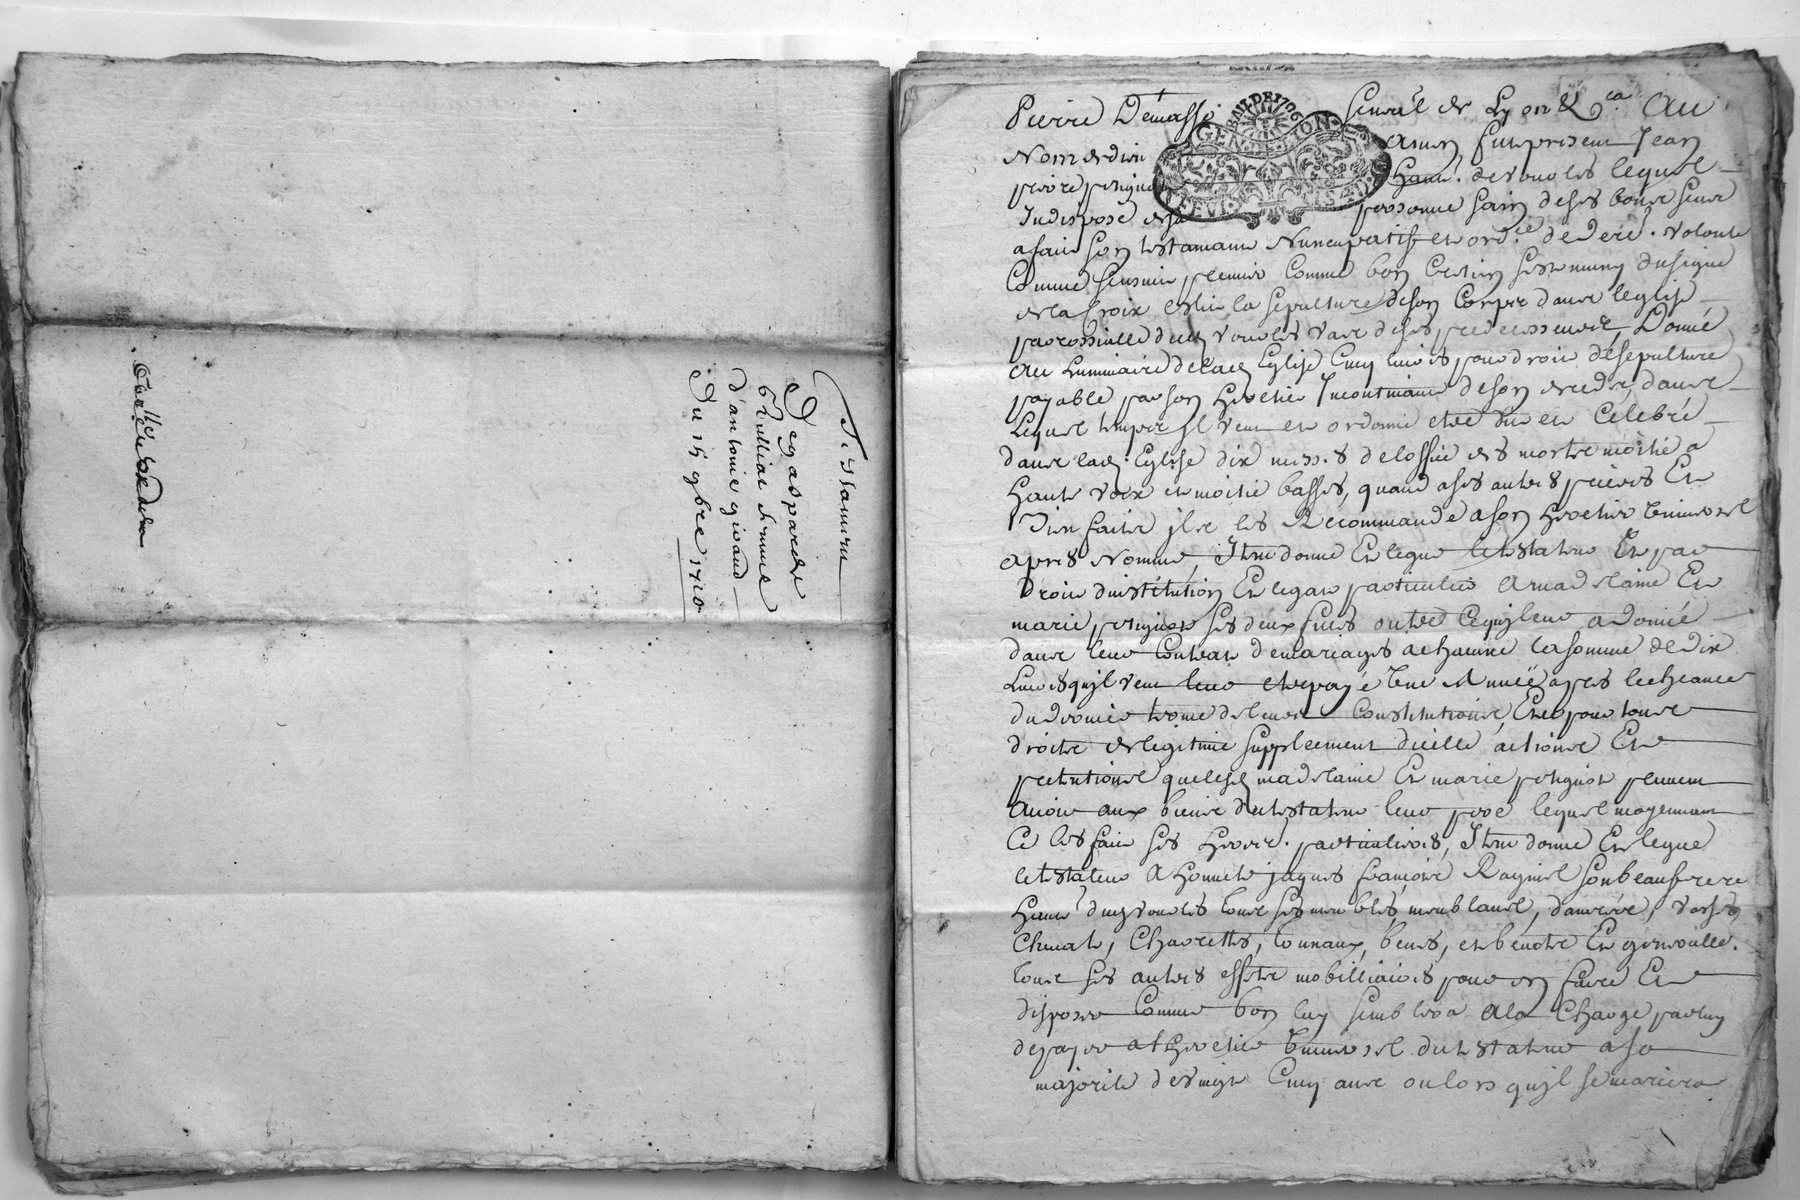 Testament
De gasparde
thulliat femme
d'antoine giraud
Du 15 9bre 1710
Pierre Demasso
seneral de Lyon & ca Au
Nom de dieu
amen fut present Jean
peire petignot
hant. de vouoles lequel
Indisposé de sa
personne sain de ses bons sens
a fait son testamant Nuncupatif et ord.ce de dere. volonté
Comme sensuit premier Comme bon Cretien sest muny du signe
de la Croix eslut la sepulture de son Corps dans leglise
parrossialle dud vouoles vase de ses predecesseurs, Donné
au Luminaire de lad Eglise Cinq livres pour droit de sepulture
payable par son heretier Incontinant de son deceds, dans
Lequel temps il veut et ordonne etre dit et Celebré
dans lad. Eglise dix messes de loffice des morts moitié a
Haute voix et moitié basses, quand a ses autres prieres Et
bien faits il se les Recommande a son heretier universel
apres Nommé, Item donne Et legue le testateur Et par
droit dinstitution Et legat particulier a madelaine Et
marie petignot ses deux filles outre Ce quil leur a donné
dans leur Contrat de mariages a chacune la somme de dix
Livres quil veut leur etre payé une Année apres lecheance
du dernier terme de leurs Constitutions, Et ce pour tous
droits de legitime supplement dicelle actions Et
pretentions que lesd madelaine Et marie petignot peuvent
avoir aux biens du testateur leur pere lequel moyennant
Ce les fait ses herit. particulieres, Item donne Et legue
le testateur a honnete jaques françois Raynel son beau frere
hant dud vouoles tous ses meubles meublans, danrées,
Cheval, Charettes, tonnaux, et Et generalle.
tous ses autres effets mobilliaires pour en faire Et
disposer Comme bon luy semblera a la Charge par luy
de payer a l heretier universel du testateur a sa
majorite de vingt Cinq ans ou lors quil se mariera